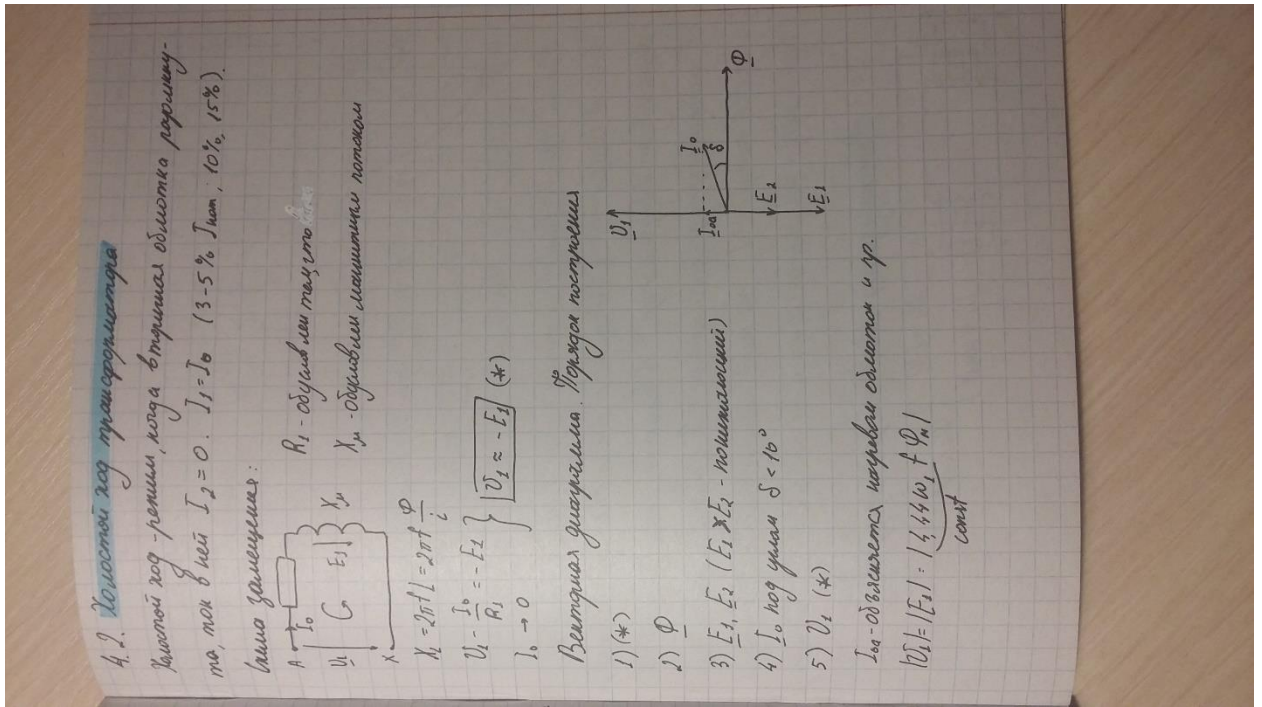 4.2. Холостой ход трансформатора
Холостой ход - режим, когда вторичная обмотка разомкну-
та, ток в ней I₂ = 0. I₁ = I₀ (3-5% Iном; 10%, 15%).
Схема замещения:
A I₀
U₁ E₁ Xμ
X
R₁ - обусловлен тем, что
Xμ - обусловлен магнитным потоком
X₁ = 2πfL = 2πf Ф/i
U₁ - I₀/R₁ = -E₁
I₀ → 0
U₁ ≈ -E₁ (*)
Векторная диаграмма. Порядок построения
1) (*)
2) Ф
3) E₁, E₂ (E₁ > E₂ - понижающий)
4) I₀ под углом δ < 10°
5) U₁ (*)
U₁
I₀а I₀
δ
Ф
E₂
E₁
I₀а - объясняется нагревом обмоток и пр.
|U₁| = |E₁| = |4,44 w₁ f Фм|
const